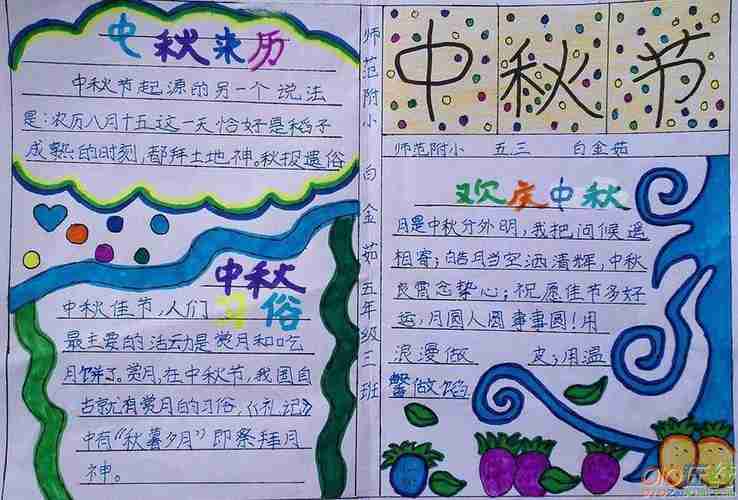 中秋来历
中秋节起源的另一个说法
是:农历八月十五这一天恰好是稻子
成熟的时刻,都拜土地神。秋报遗俗
中秋
习俗
中秋佳节,人们
最主要的活动是赏月和吃
月饼了。赏月,在中秋节,我国自
古就有赏月的习俗,《礼记》
中有“秋暮夕月”即祭拜月
神。
师范附小 白金茹 五年级三班
中秋节
师范附小 五三 白金茹
欢度中秋
月是中秋分外明,我把问候遥
相寄;皓月当空洒清辉,中秋
良宵念挚心;祝愿佳节多好
运,月圆人圆事事圆!用
浪漫做 皮;用温
馨做馅